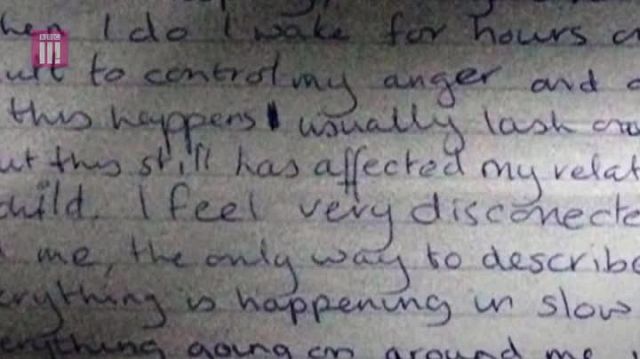 BBC
III!
when I do I wake for hours
to control my anger and
this happens I usually lash
this still has affected my
child. I feel very
me, the only way to describe
everything is happening in slow
everything going on around me